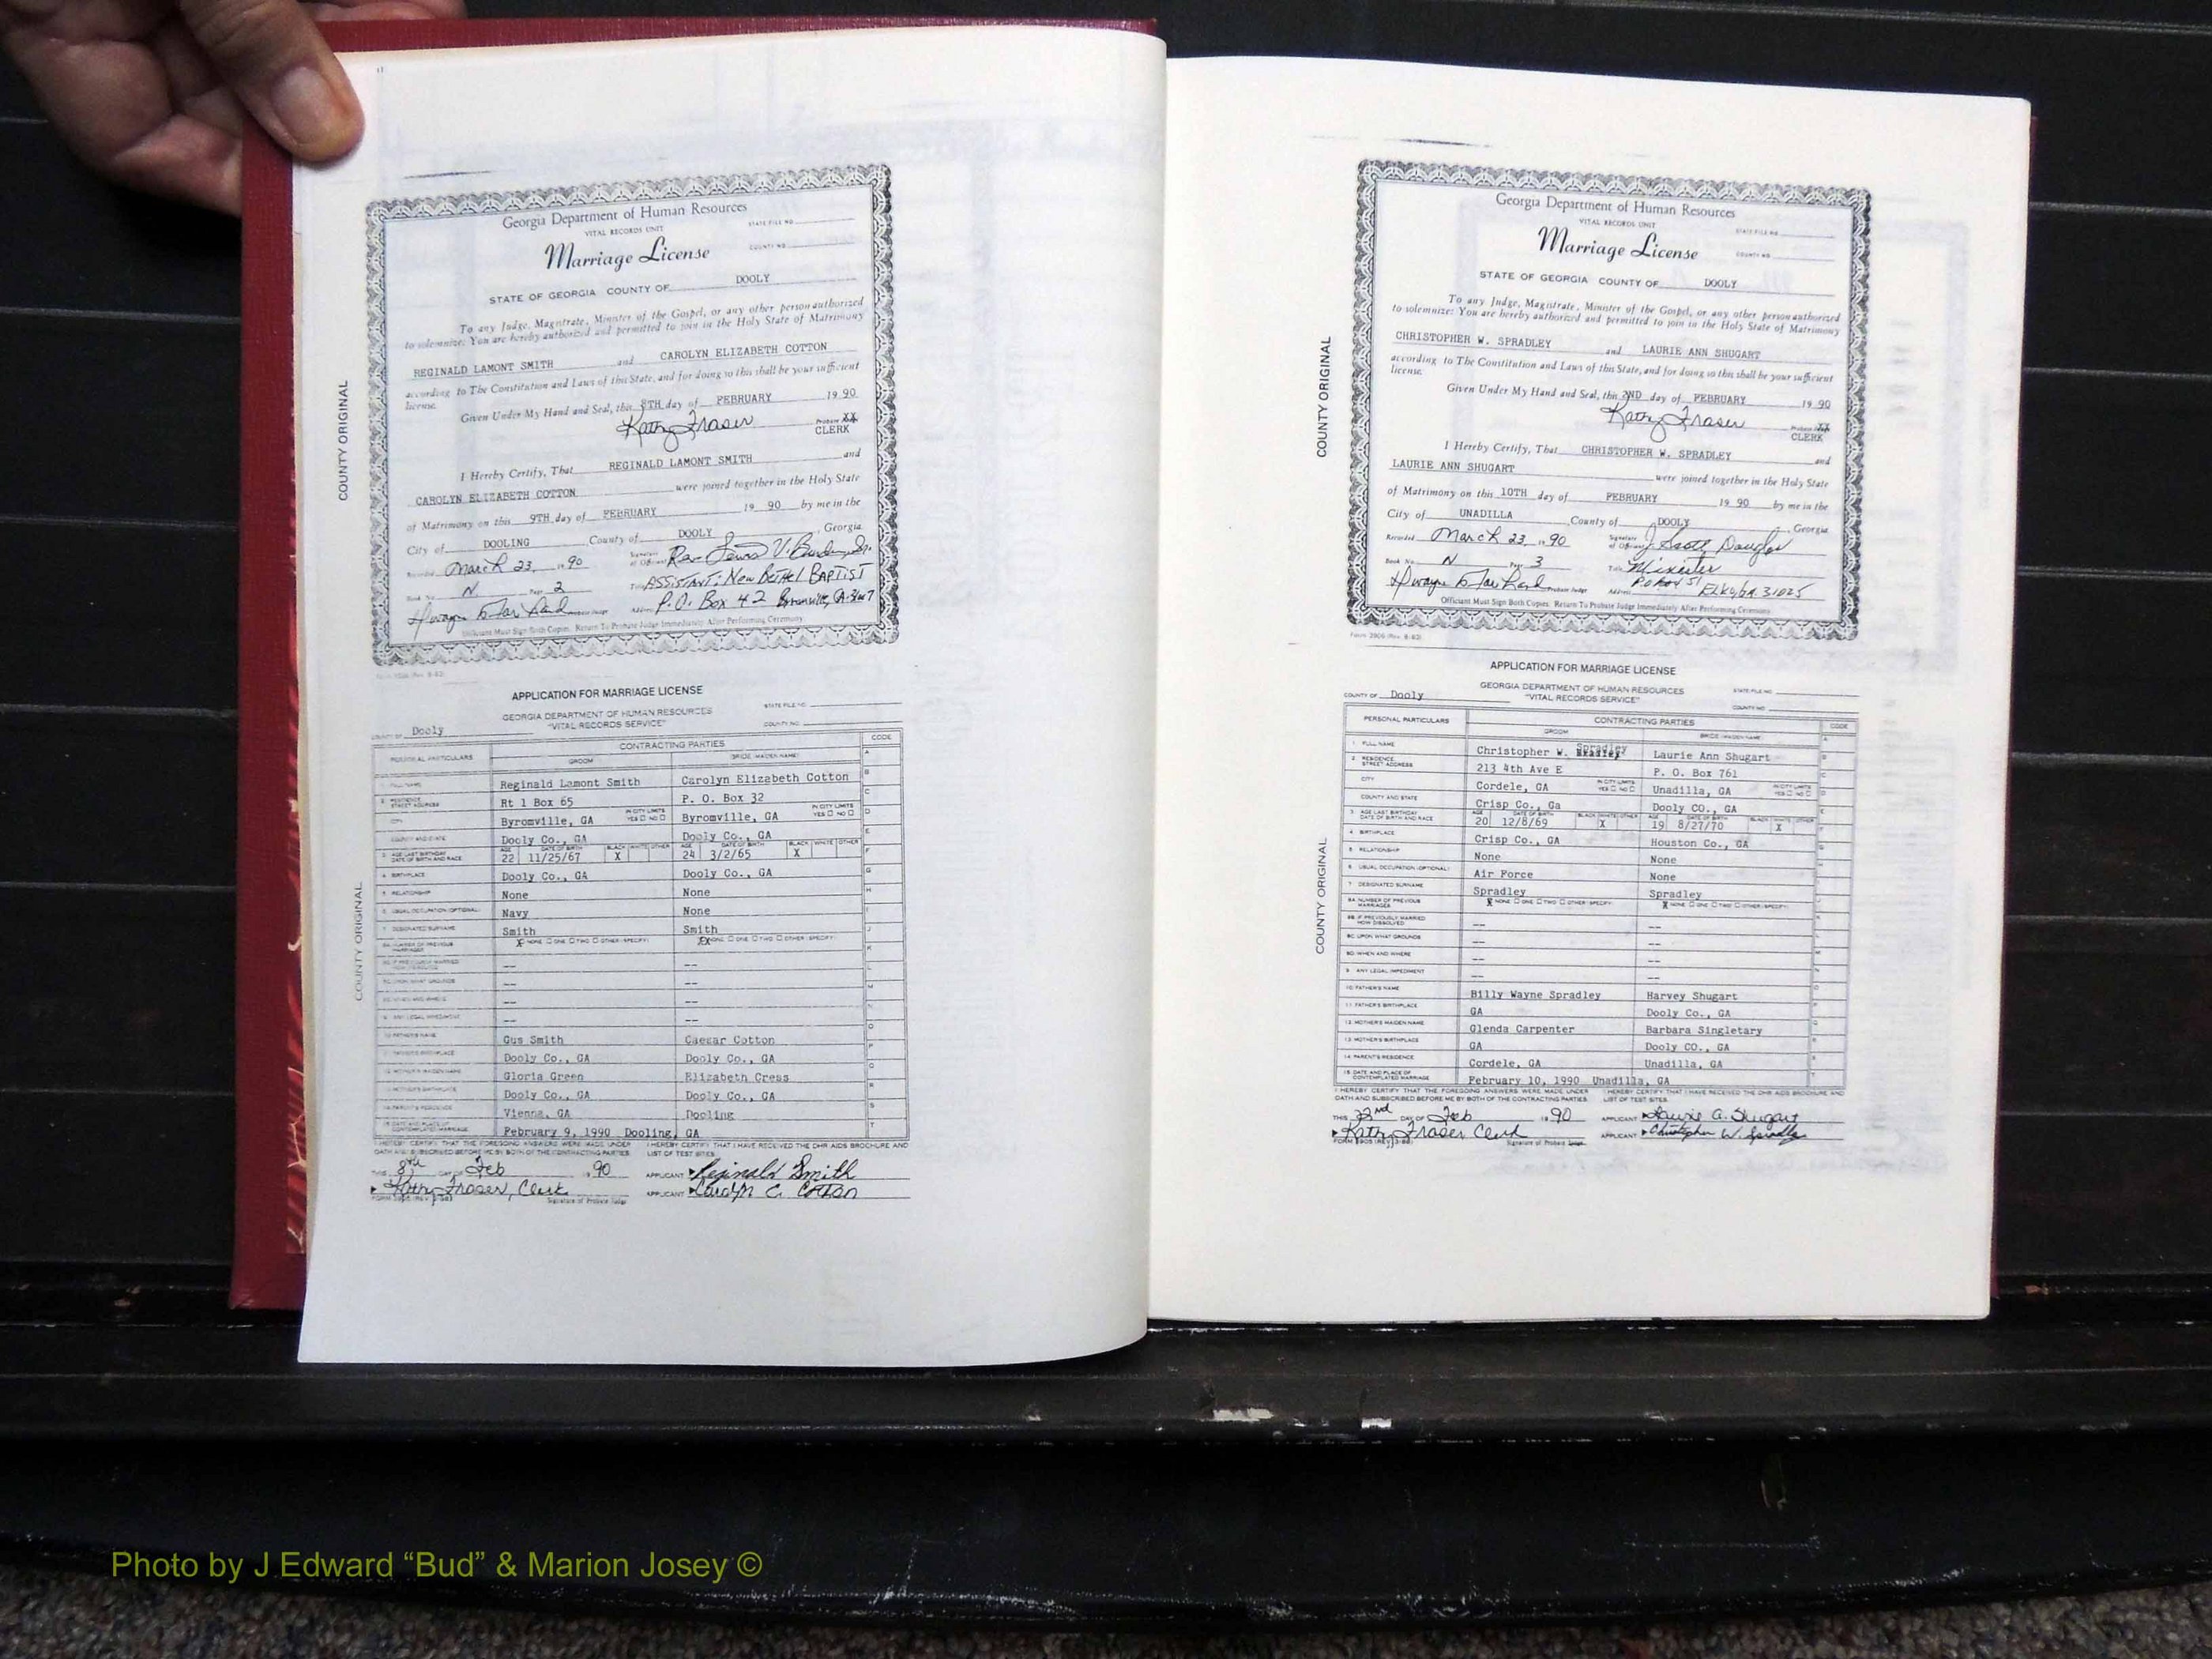 Georgia Department of Human Resources
VITAL RECORDS UNIT
STATE FILE NO.
Marriage License
COUNTY NO.
STATE OF GEORGIA COUNTY OF DOOLY
To any Judge, Magistrate, Minister of the Gospel, or any other person authorized
to solemnize: You are hereby authorized and permitted to join in the Holy State of Matrimony
REGINALD LAMONT SMITH and CAROLYN ELIZABETH COTTON
according to The Constitution and Laws of this State, and for doing so this shall be your sufficient
license.
Given Under My Hand and Seal, this 8TH day of FEBRUARY 19 90
Kathy Fraser
CLERK
I Hereby Certify, That REGINALD LAMONT SMITH and
CAROLYN ELIZABETH COTTON were joined together in the Holy State
of Matrimony on this 9TH day of FEBRUARY 19 90 by me in the
City of DOOLING, County of DOOLY, Georgia
Recorded March 23, 1990 Signature of Officiant Rev
Book No. N Page 2 Title ASSISTANT: New BETHEL BAPTIST
Probate Judge Address P.O. Box 42
Officiant Must Sign Both Copies. Return To Probate Judge Immediately After Performing Ceremony
COUNTY ORIGINAL
APPLICATION FOR MARRIAGE LICENSE
GEORGIA DEPARTMENT OF HUMAN RESOURCES
"VITAL RECORDS SERVICE"
STATE FILE NO.
COUNTY NO.
COUNTY OF Dooly
PERSONAL PARTICULARS CONTRACTING PARTIES CODE
GROOM BRIDE (MAIDEN NAME)
1. FULL NAME Reginald Lamont Smith Carolyn Elizabeth Cotton
2. RESIDENCE STREET ADDRESS Rt 1 Box 65 P. O. Box 32
CITY Byromville, GA IN CITY LIMITS YES NO Byromville, GA IN CITY LIMITS YES NO
COUNTY AND STATE Dooly Co., GA Dooly Co., GA
3. AGE LAST BIRTHDAY DATE OF BIRTH AND RACE 22 11/25/67 X 24 3/2/65 X
4. BIRTHPLACE Dooly Co., GA Dooly Co., GA
5. RELATIONSHIP None None
6. USUAL OCCUPATION (OPTIONAL) Navy None
7. DESIGNATED SURNAME Smith Smith
8A. NUMBER OF PREVIOUS MARRIAGES X NONE ONE TWO OTHER (SPECIFY) X NONE ONE TWO OTHER (SPECIFY)
-- --
-- --
-- --
-- --
10. FATHER'S NAME Gus Smith Caesar Cotton
11. FATHER'S BIRTHPLACE Dooly Co., GA Dooly Co., GA
12. MOTHER'S MAIDEN NAME Gloria Green Elizabeth Cress
13. MOTHER'S BIRTHPLACE Dooly Co., GA Dooly Co., GA
14. PARENT'S RESIDENCE Vienna, GA Dooling
15. DATE AND PLACE OF CONTEMPLATED MARRIAGE February 9, 1990 Dooling, GA
I HEREBY CERTIFY THAT THE FOREGOING ANSWERS WERE MADE UNDER OATH AND SUBSCRIBED BEFORE ME BY BOTH OF THE CONTRACTING PARTIES.
I HEREBY CERTIFY THAT I HAVE RECEIVED THE DHR AIDS BROCHURE AND LIST OF TEST SITES.
THIS 8th DAY OF Feb 1990 APPLICANT Reginald Smith
Kathy Fraser, Clerk APPLICANT Carolyn E. Cotton
Signature of Probate Judge
COUNTY ORIGINAL
Georgia Department of Human Resources
VITAL RECORDS UNIT
STATE FILE NO.
Marriage License
COUNTY NO.
STATE OF GEORGIA COUNTY OF DOOLY
To any Judge, Magistrate, Minister of the Gospel, or any other person authorized
to solemnize: You are hereby authorized and permitted to join in the Holy State of Matrimony
CHRISTOPHER W. SPRADLEY and LAURIE ANN SHUGART
according to The Constitution and Laws of this State, and for doing so this shall be your sufficient
license.
Given Under My Hand and Seal, this 2ND day of FEBRUARY 19 90
Kathy Fraser
CLERK
I Hereby Certify, That CHRISTOPHER W. SPRADLEY and
LAURIE ANN SHUGART were joined together in the Holy State
of Matrimony on this 10TH day of FEBRUARY 19 90 by me in the
City of UNADILLA, County of DOOLY, Georgia
Recorded March 23, 1990 Signature of Officiant J Scott Douglas
Book No. N Page 3 Title Minister
Probate Judge Address P O Box 51 Elko, Ga. 31025
Officiant Must Sign Both Copies. Return To Probate Judge Immediately After Performing Ceremony
Form 3906 (Rev. 8-82)
COUNTY ORIGINAL
APPLICATION FOR MARRIAGE LICENSE
GEORGIA DEPARTMENT OF HUMAN RESOURCES
"VITAL RECORDS SERVICE"
STATE FILE NO.
COUNTY NO.
COUNTY OF Dooly
PERSONAL PARTICULARS CONTRACTING PARTIES CODE
GROOM BRIDE (MAIDEN NAME)
1. FULL NAME Christopher W. Spradley Laurie Ann Shugart
2. RESIDENCE STREET ADDRESS 213 4th Ave E P. O. Box 761
CITY Cordele, GA IN CITY LIMITS YES NO Unadilla, GA IN CITY LIMITS YES NO
COUNTY AND STATE Crisp Co., Ga Dooly CO., GA
3. AGE LAST BIRTHDAY DATE OF BIRTH AND RACE 20 12/8/69 X 19 8/27/70 X
4. BIRTHPLACE Crisp Co., GA Houston Co., GA
5. RELATIONSHIP None None
6. USUAL OCCUPATION (OPTIONAL) Air Force None
7. DESIGNATED SURNAME Spradley Spradley
8A. NUMBER OF PREVIOUS MARRIAGES X NONE ONE TWO OTHER (SPECIFY) X NONE ONE TWO OTHER (SPECIFY)
8B. IF PREVIOUSLY MARRIED HOW DISSOLVED -- --
8C. UPON WHAT GROUNDS -- --
8D. WHEN AND WHERE -- --
9. ANY LEGAL IMPEDIMENT -- --
10. FATHER'S NAME Billy Wayne Spradley Harvey Shugart
11. FATHER'S BIRTHPLACE GA Dooly Co., GA
12. MOTHER'S MAIDEN NAME Glenda Carpenter Barbara Singletary
13. MOTHER'S BIRTHPLACE GA Dooly CO., GA
14. PARENT'S RESIDENCE Cordele, GA Unadilla, GA
15. DATE AND PLACE OF CONTEMPLATED MARRIAGE February 10, 1990 Unadilla, GA
I HEREBY CERTIFY THAT THE FOREGOING ANSWERS WERE MADE UNDER OATH AND SUBSCRIBED BEFORE ME BY BOTH OF THE CONTRACTING PARTIES.
I HEREBY CERTIFY THAT I HAVE RECEIVED THE DHR AIDS BROCHURE AND LIST OF TEST SITES.
THIS DAY OF Feb 1990 APPLICANT Laurie A. Shugart
Kathy Fraser Clerk APPLICANT Christopher W. Spradley
Signature of Probate Judge
COUNTY ORIGINAL
Photo by J Edward “Bud” & Marion Josey ©